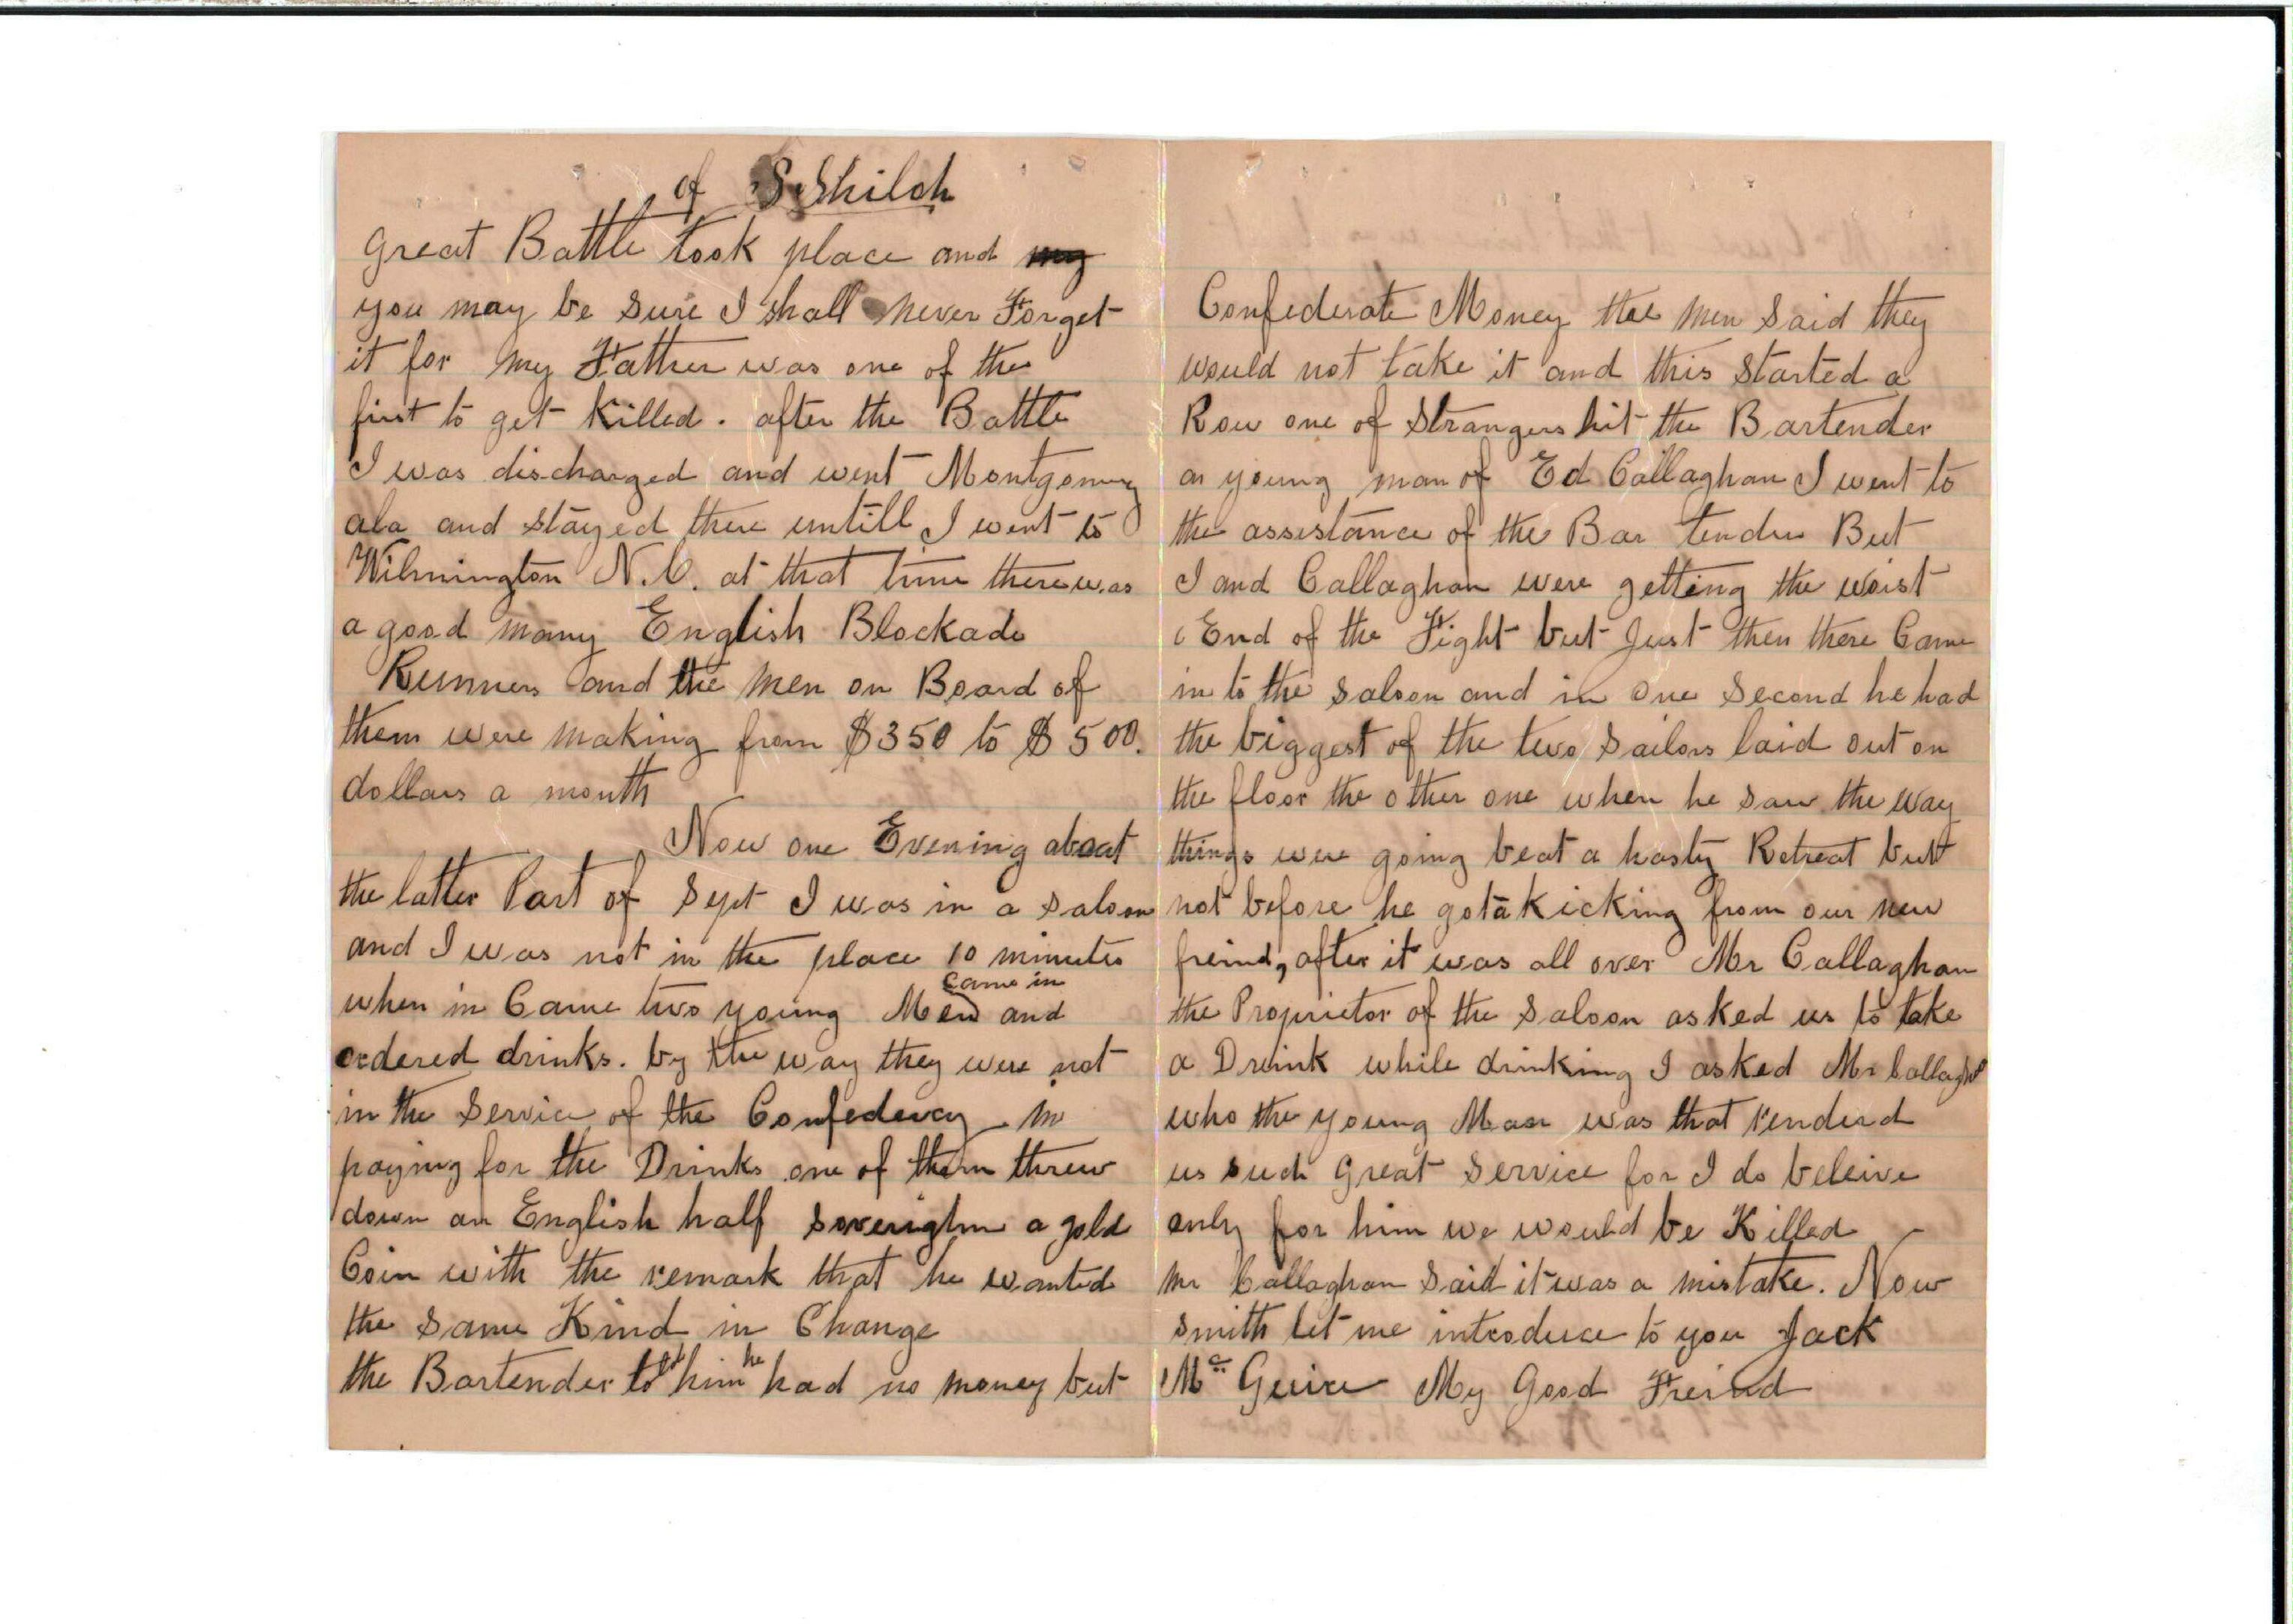 of Shiloh
Great Battle took place and my
you may be sure I shall never Forget
it for my Father was one of the
first to get Killed. after the Battle
I was discharged and went Montgomery
ala and stayed there untill I went to
Wilmington N.C. at that time there was
a good many English Blockade
Runners and the men on Board of
them were making from $350 to $500.
dollars a month
Now one Evening about
the latter Part of Sept I was in a saloon
and I was not in the place 10 minutes
came in
when in Came two young Men and
ordered drinks. by the way they were not
in the Service of the Confederacy in
paying for the Drinks one of them threw
down an English half soverighn a gold
Coin with the remark that he wanted
the same Kind in Change
the Bartender told him he had no money but
Confederate Money the men said they
would not take it and this started a
Row one of strangers hit the Bartender
a young man of Ed Callaghan I went to
the assistance of the Bar tender But
I and Callaghan were getting the worst
End of the Fight but Just then there Came
in to the saloon and in one second he had
the biggest of the two sailors laid out on
the floor the other one when he saw the way
things were going beat a hasty Retreat but
not before he got a kicking from our new
freind, after it was all over Mr Callaghan
the Proprietor of the saloon asked us to take
a Drink while drinking I asked Mr Callaghan
who the young Man was that renderd
us such great service for I do beleive
only for him we would be Killed
Mr Callaghan said it was a mistake. Now
smith let me introduce to you Jack
Mc Guire My Good Freind